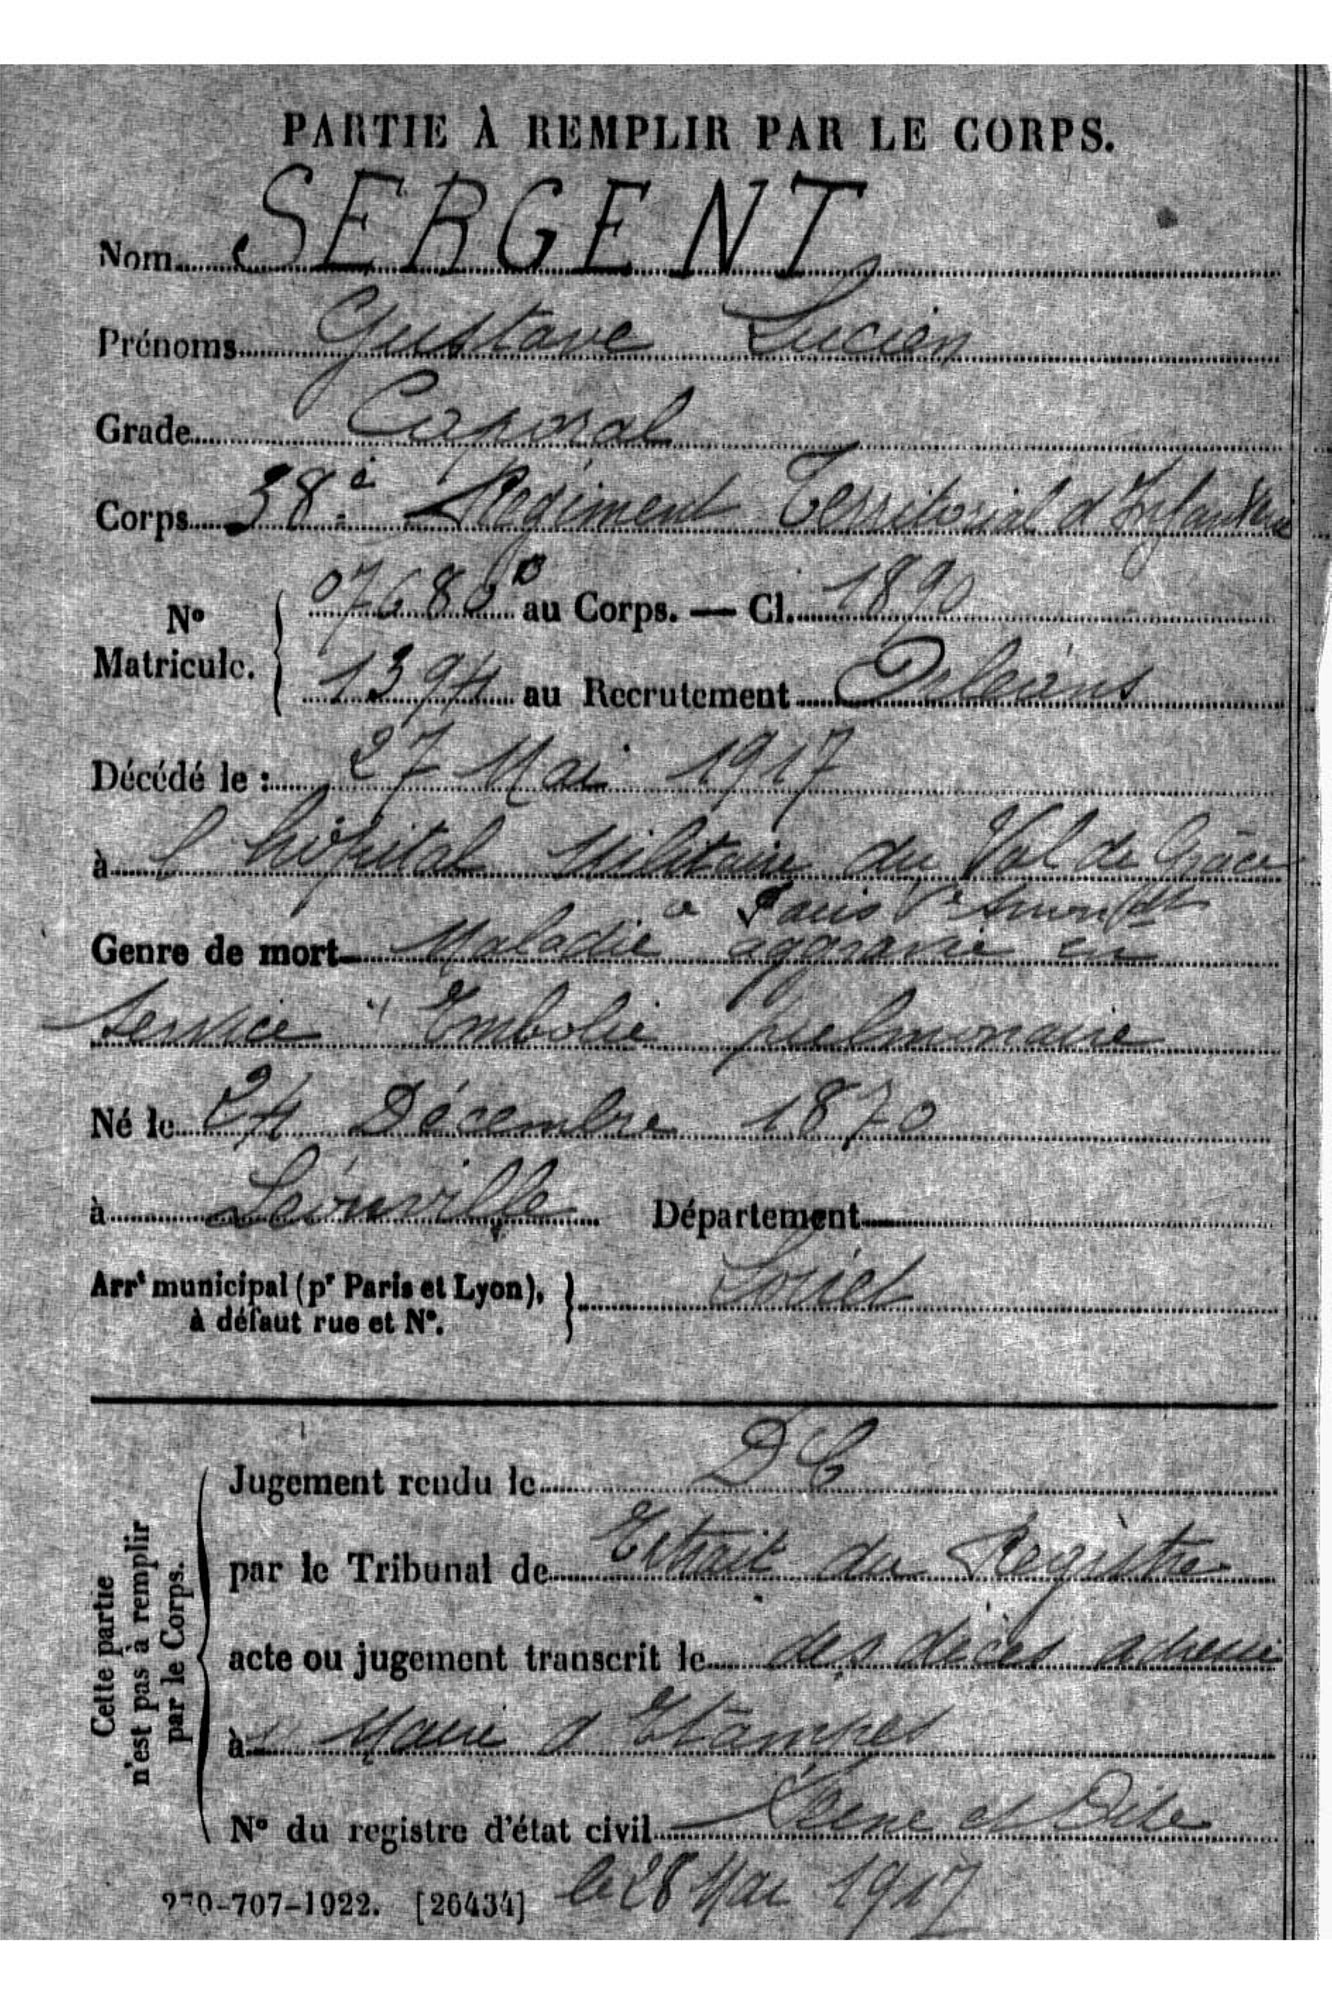 PARTIE À REMPLIR PAR LE CORPS.
Nom SERGENT
Prénoms Gustave Lucien
Grade Caporal
Corps 38e Régiment Territorial d'Infanterie
No Matricule. 
07680 au Corps. — Cl. 1890
1394 au Recrutement Orléans
Décédé le : 27 Mai 1917
à l'hôpital Militaire du Val de Grâce
à Paris Ve
Genre de mort Maladie aggravée en
service "Embolie pulmonaire
Né le 24 Décembre 1870
à Léouville Département
Arrt municipal (pr Paris et Lyon), à défaut rue et No. Loiret
Cette partie n'est pas à remplir par le Corps.
Jugement rendu le DC
par le Tribunal de Extrait du Registre
acte ou jugement transcrit le des décès
à Maire d'Etampes
No du registre d'état civil Seine et Oise
le 28 Mai 1917
-707-1922. [26434]